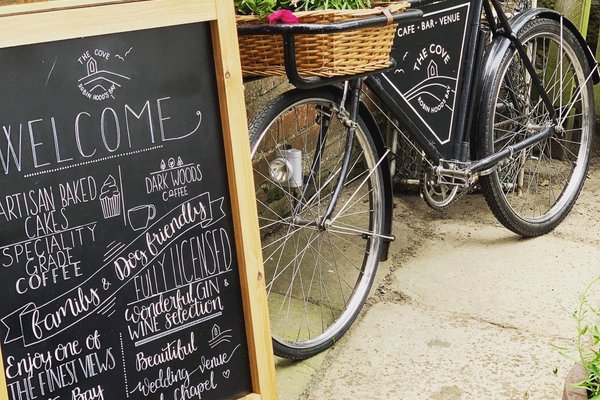 THE COVE
ROBIN HOOD'S BAY
WELCOME
ARTISAN BAKED
CAKES
SPECIALITY
GRADE
COFFEE
DARK WOODS
COFFEE
family & Dog friendly
FULLY LICENSED
&
wonderful GIN &
WINE selection
Enjoy one of
THE FINEST VIEWS
Bay
Beautiful
Wedding venue
Chapel
CAFE · BAR · VENUE
THE COVE
ROBIN HOOD'S BAY